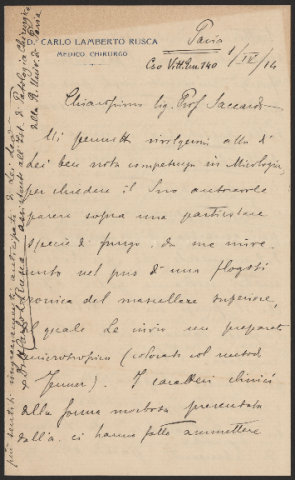 D.r CARLO LAMBERTO RUSCA
MEDICO CHIRURGO
Pavia
Cso Vitt. Em. 140
1/IV/14
Chiarissimo Sig. Prof Saccardo
Mi permetto rivolgermi alla di
Lei ben nota competenza in Micologia,
per chiedere il Suo autorevole
parere sopra una particolare
specie di fungo da me rinve-
nuto nel pus d'una flogosi
cronica del mascellare superiore,
il quale Le invio un preparato
microscopico (colorato col metodo
Jenner). I caratteri clinici
della forma morbosa presentata
dall'a. ci hanno fatto ammettere
più sentiti ringraziamenti anticipati di Lei dev.
D.r Carlo L Rusca assistente all'Ist. di Patologia Chirurgica
della R. Univ. di Pavia